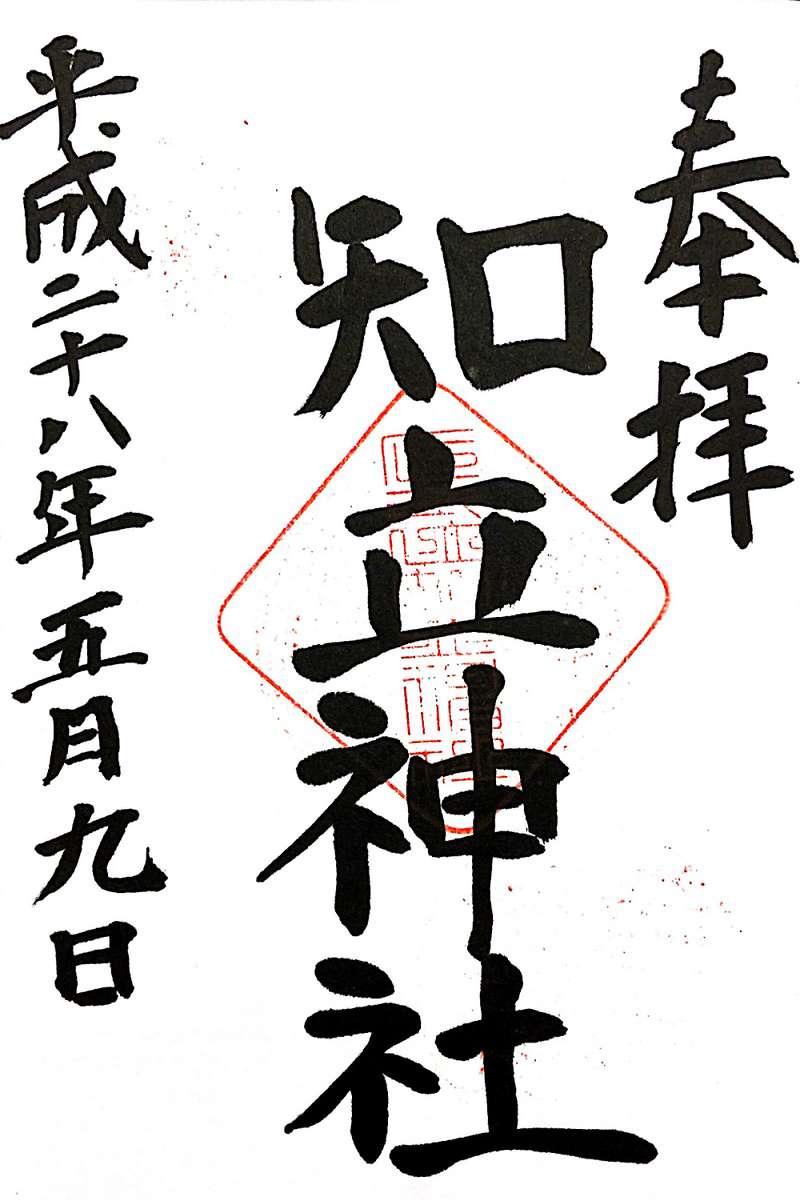 奉拝
知立神社
平成二十八年五月九日